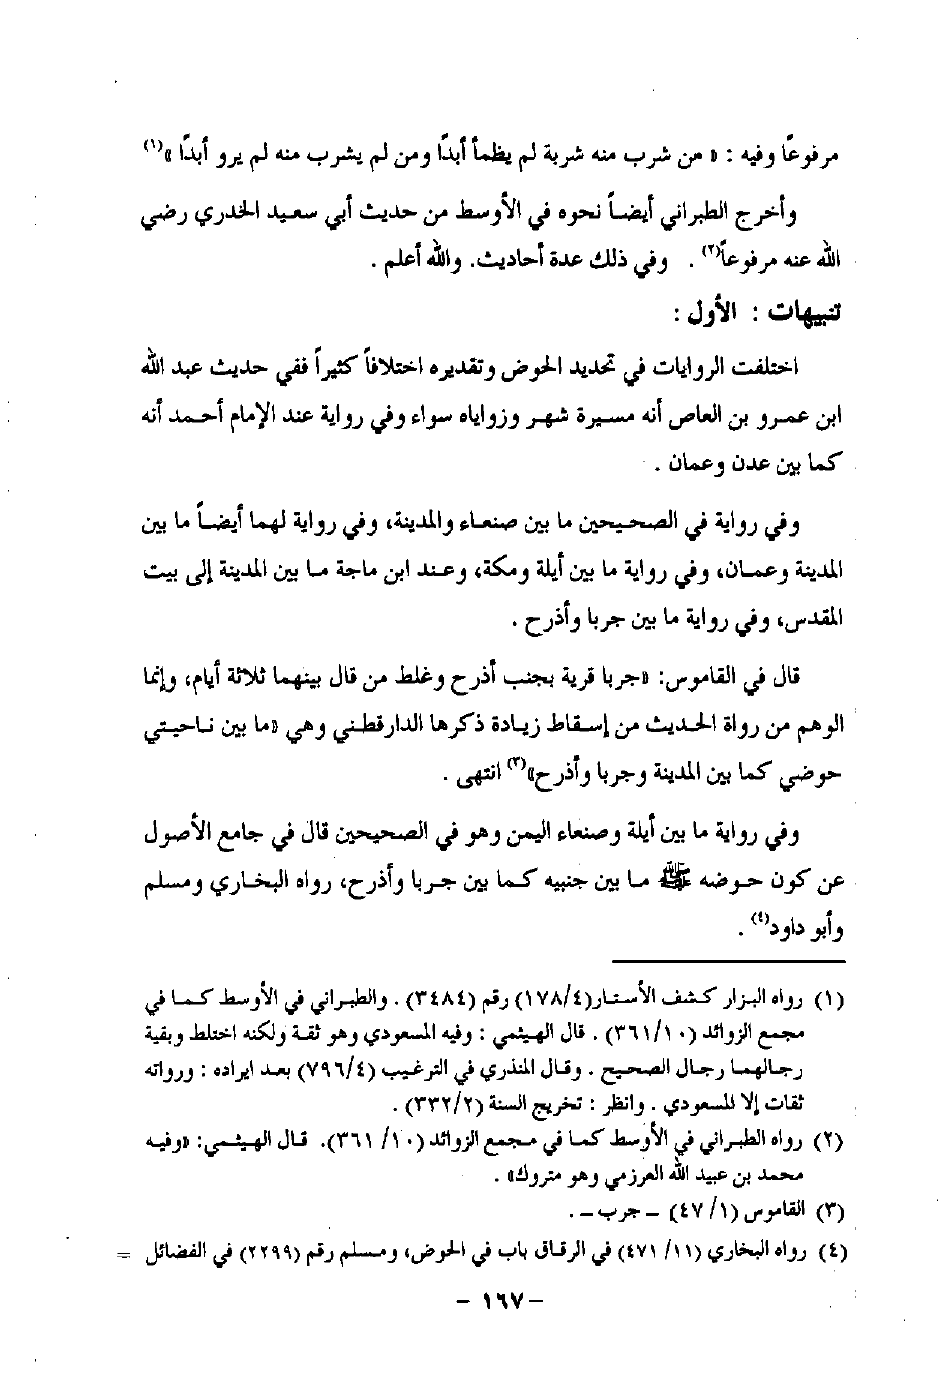 مرفوعاً وفيه : « من شرب منه شربة لم يظمأ أبدًا ومن لم يشرب منه لم يرو أبدًا »(١)
وأخرج الطبراني أيضاً نحوه في الأوسط من حديث أبي سعيد الخدري رضي
الله عنه مرفوعاً(٢) . وفي ذلك عدة أحاديث. والله أعلم .
تنبيهات : الأول :
اختلفت الروايات في تحديد الحوض وتقديره اختلافاً كثيراً ففي حديث عبد الله
ابن عمرو بن العاص أنه مسيرة شهر وزواياه سواء وفي رواية عند الإمام أحمد أنه
كما بين عدن وعمان .
وفي رواية في الصحيحين ما بين صنعاء والمدينة، وفي رواية لهما أيضاً ما بين
المدينة وعمان، وفي رواية ما بين أيلة ومكة، وعند ابن ماجة ما بين المدينة إلى بيت
المقدس، وفي رواية ما بين جربا وأذرح .
قال في القاموس: «جربا قرية بجنب أذرح وغلط من قال بينهما ثلاثة أيام، وإنما
الوهم من رواة الحديث من إسقاط زيادة ذكرها الدارقطني وهي «ما بين ناحيتي
حوضي كما بين المدينة وجربا وأذرح»(٣) انتهى .
وفي رواية ما بين أيلة وصنعاء اليمن وهو في الصحيحين قال في جامع الأصول
عن كون حوضه ﷺ ما بين جنبيه كما بين جربا وأذرح، رواه البخاري ومسلم
وأبو داود(٤) .
(١) رواه البزار كشف الأستار(١٧٨/٤) رقم (٣٤٨٤) . والطبراني في الأوسط كما في
مجمع الزوائد (٣٦١/١٠) . قال الهيثمي : وفيه المسعودي وهو ثقة ولكنه اختلط وبقية
رجالهما رجال الصحيح . وقال المنذري في الترغيب (٧٩٦/٤) بعد ايراده : ورواته
ثقات إلا المسعودي . وانظر : تخريج السنة (٣٣٢/٢) .
(٢) رواه الطبراني في الأوسط كما في مجمع الزوائد (٣٦١/١٠). قال الهيثمي: «وفيه
محمد بن عبيد الله العرزمي وهو متروك» .
(٣) القاموس (٤٧/١) – جرب – .
(٤) رواه البخاري (٤٧١/١١) في الرقاق باب في الحوض، ومسلم رقم (٢٢٩٩) في الفضائل =
– ١٦٧ –